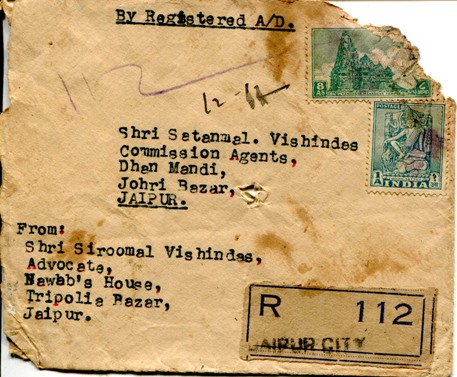 By Registered A/D.
112
12-11
8 As
Shri Satanmal. Vishindas
Commission Agents,
Dhan Mandi,
Johri Bazar,
JAIPUR.
POSTAGE
1 A
INDIA
From:
Shri Siroomal Vishindas,
Advocate,
Nawab's House,
Tripolia Bazar,
Jaipur.
R 112
JAIPUR CITY